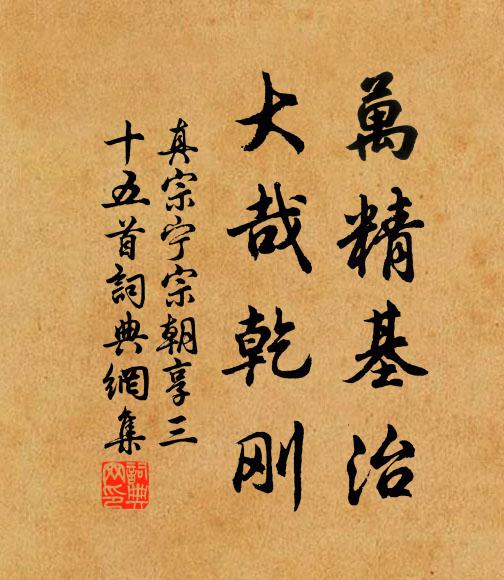 萬精基治
大哉乾刚
真宗宁宗朝享三
十五首詞典網集
詞典网印